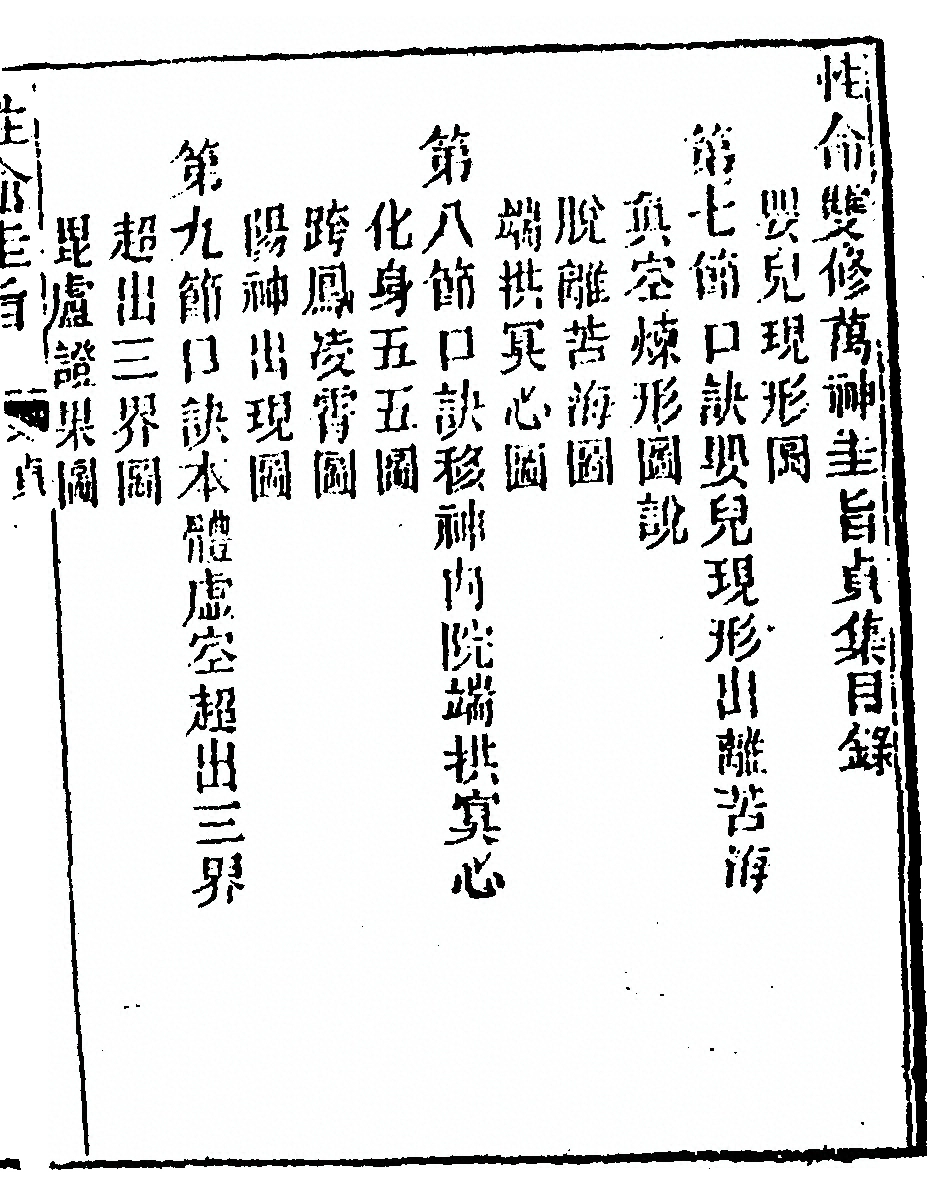 性命雙修萬神圭旨貞集目錄
嬰兒現形圖
第七節口訣嬰兒現形出離苦海
真空煉形圖說
脫離苦海圖
端拱冥心圖
第八節口訣移神內院端拱冥心
化身五五圖
跨鳳凌霄圖
陽神出現圖
第九節口訣本體虛空超出三界
超出三界圖
毘盧證果圖
性命圭旨 貞